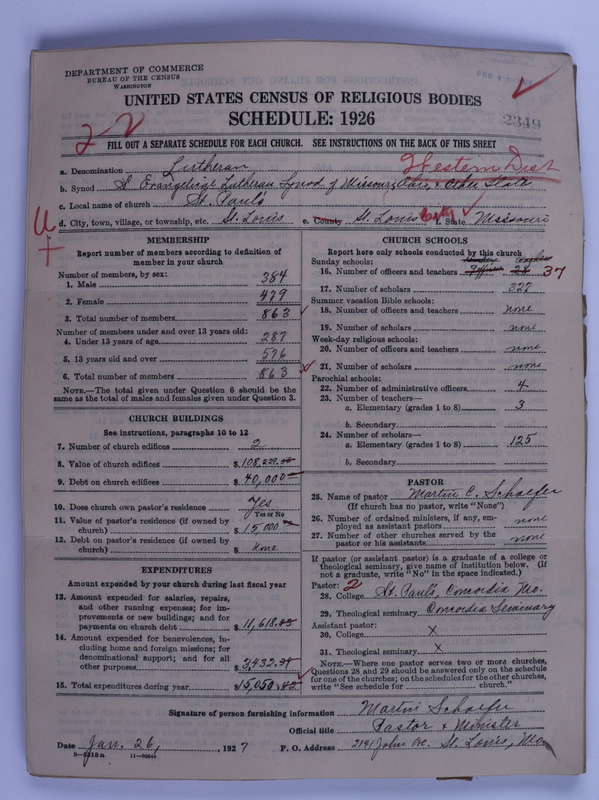 DEPARTMENT OF COMMERCE
BUREAU OF THE CENSUS
WASHINGTON
UNITED STATES CENSUS OF RELIGIOUS BODIES
SCHEDULE: 1926
2349
2-2
FILL OUT A SEPARATE SCHEDULE FOR EACH CHURCH. SEE INSTRUCTIONS ON THE BACK OF THIS SHEET
a. Denomination Lutheran
Western Dist
b. Synod Evangelical Lutheran Synod of Missouri, Ohio, & other States
c. Local name of church St. Paul's
d. City, town, village, or township, etc. St. Louis e. County St. Louis City f. State Missouri
MEMBERSHIP
Report number of members according to definition of
member in your church
Number of members, by sex:
1. Male 384
2. Female 479
3. Total number of members 863
Number of members under and over 13 years old:
4. Under 13 years of age 287
5. 13 years old and over 576
6. Total number of members 863
NOTE.—The total given under Question 6 should be the
same as the total of males and females given under Question 3.
CHURCH BUILDINGS
See instructions, paragraphs 10 to 12
7. Number of church edifices 2
8. Value of church edifices $108,229.
9. Debt on church edifices $40,000
10. Does church own pastor's residence Yes
Yes or No
11. Value of pastor's residence (if owned by
church) $15,000
12. Debt on pastor's residence (if owned by
church) $ None
EXPENDITURES
Amount expended by your church during last fiscal year
13. Amount expended for salaries, repairs,
and other running expenses; for im-
provements or new buildings; and for
payments on church debt $11,618.
14. Amount expended for benevolences, in-
cluding home and foreign missions; for
denominational support; and for all
other purposes $3,432.
15. Total expenditures during year $15,050.
CHURCH SCHOOLS
Report here only schools conducted by this church
Sunday schools:
16. Number of officers and teachers 37
17. Number of scholars 327
Summer vacation Bible schools:
18. Number of officers and teachers none
19. Number of scholars none
Week-day religious schools:
20. Number of officers and teachers none
21. Number of scholars none
Parochial schools:
22. Number of administrative officers 4
23. Number of teachers—
a. Elementary (grades 1 to 8) 3
b. Secondary
24. Number of scholars—
a. Elementary (grades 1 to 8) 125
b. Secondary
PASTOR
25. Name of pastor Martin C. Schaefer
(If church has no pastor, write "None")
26. Number of ordained ministers, if any, em-
ployed as assistant pastors none
27. Number of other churches served by the
pastor or his assistants none
If pastor (or assistant pastor) is a graduate of a college or
theological seminary, give name of institution below. (If
not a graduate, write "No" in the space indicated.)
Pastor: 2
28. College St. Paul's, Concordia Mo.
29. Theological seminary Concordia Seminary
Assistant pastor:
30. College X
31. Theological seminary X
NOTE.—Where one pastor serves two or more churches,
Questions 28 and 29 should be answered only on the schedule
for one of the churches; on the schedules for the other churches,
write "See schedule for church."
Signature of person furnishing information Martin Schaefer
Official title Pastor & Minister
Date Jan. 26, , 1927 P. O. Address 2141 John Ave. St. Louis, Mo.